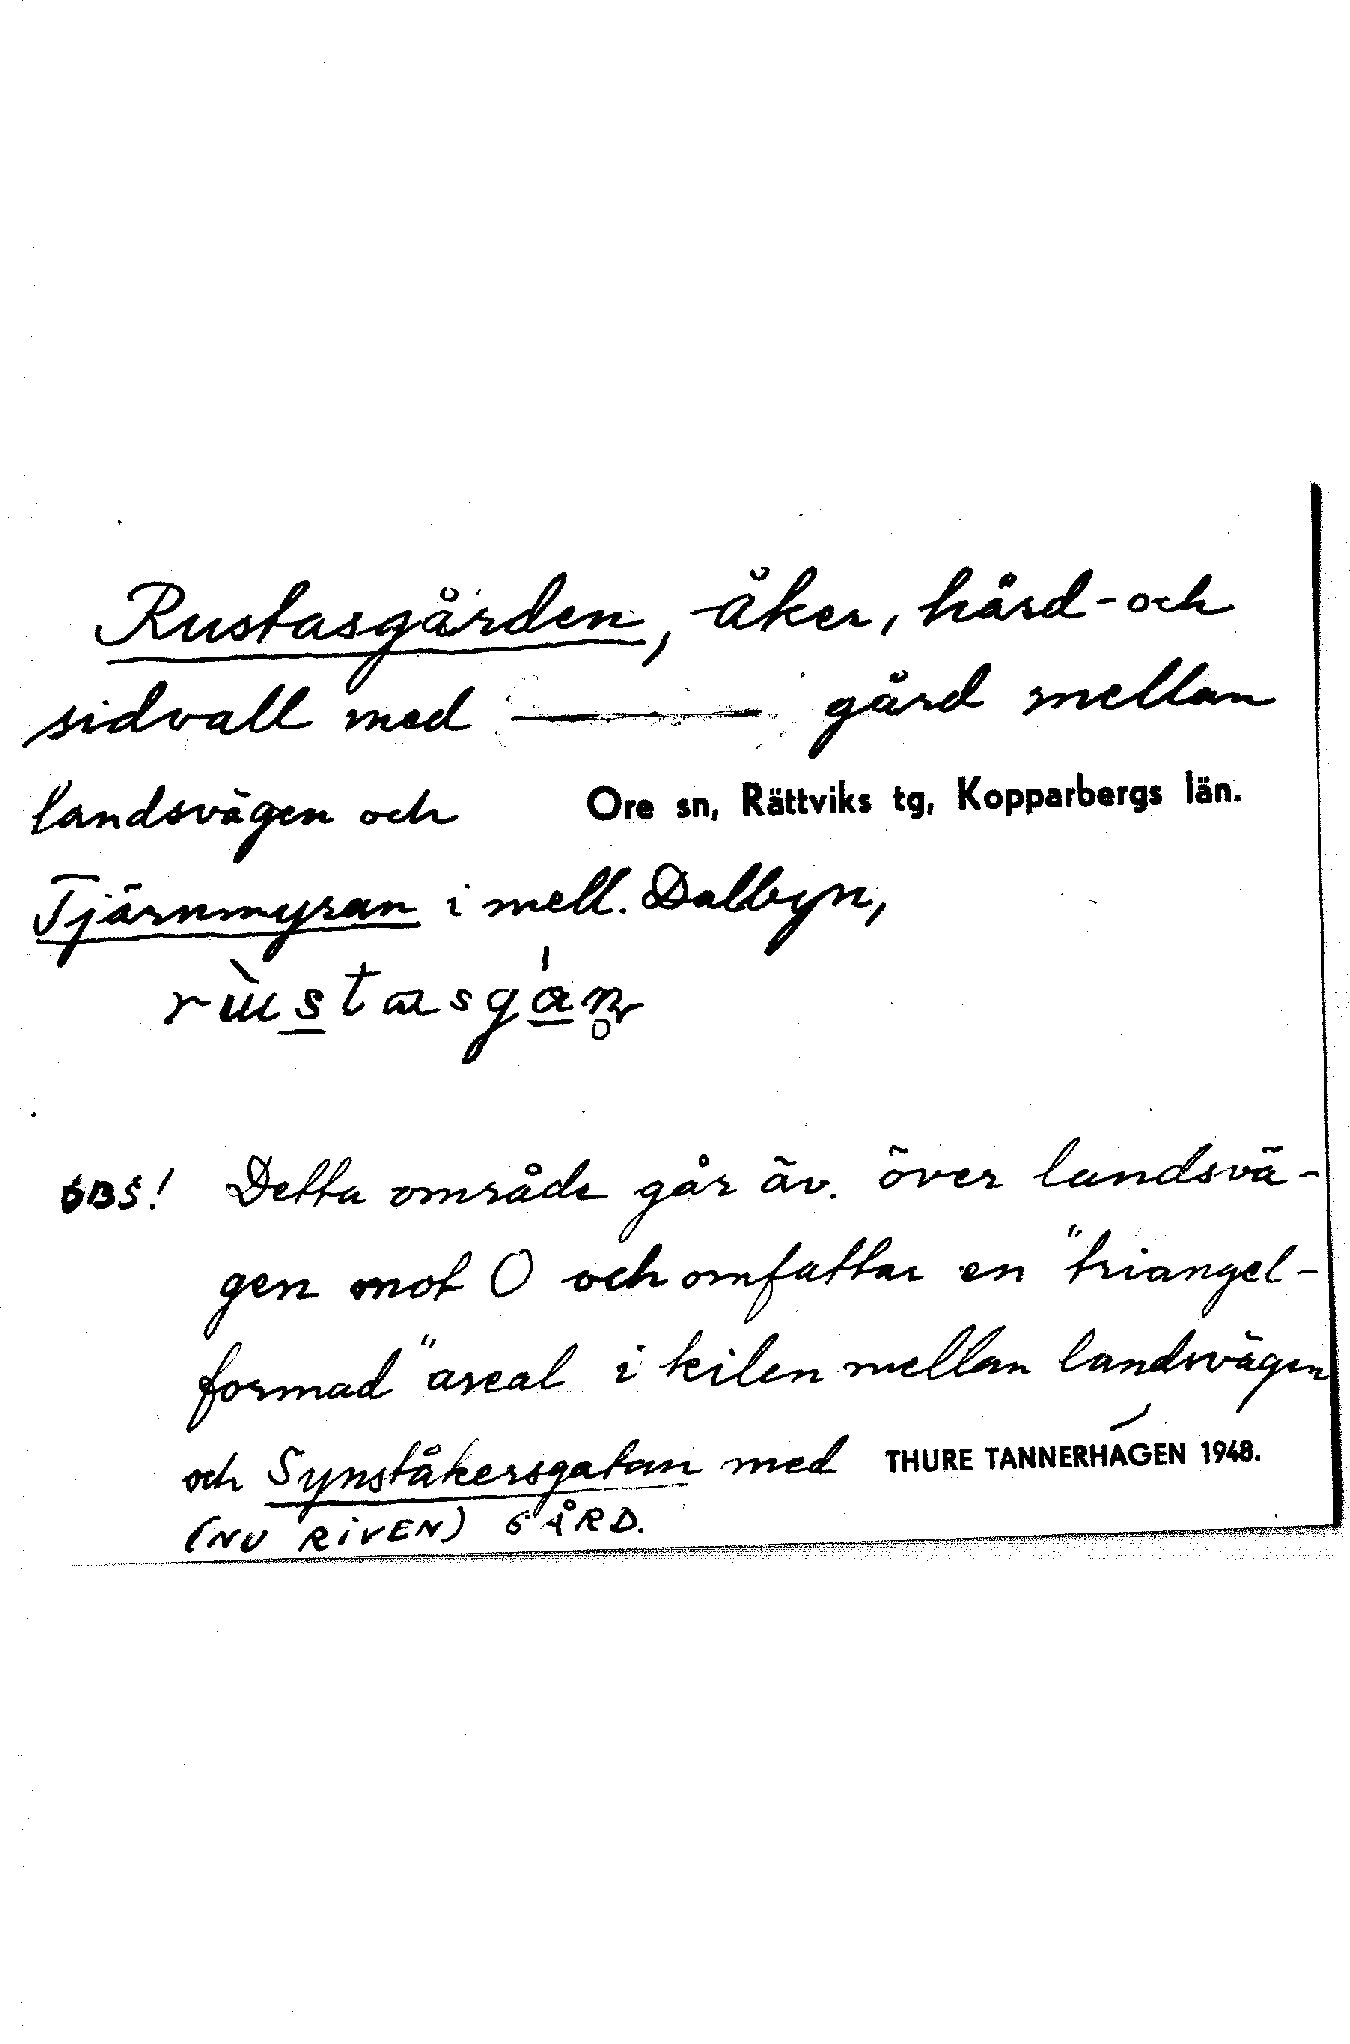 Rustasgården, åker, hård- och
sidvall med ——— gård mellan
landsvägen och
Ore sn, Rättviks tg, Kopparbergs län.
Tjärnmyran i mell. Dalbyn,
OBS! Detta område går äv. över landsvä-
gen mot O och omfattar en "triangel-
formad" areal i kilen mellan landsvägen
och Synståkersgatan med
THURE TANNERHAGEN 1948.
(NU RIVEN) GÅRD.